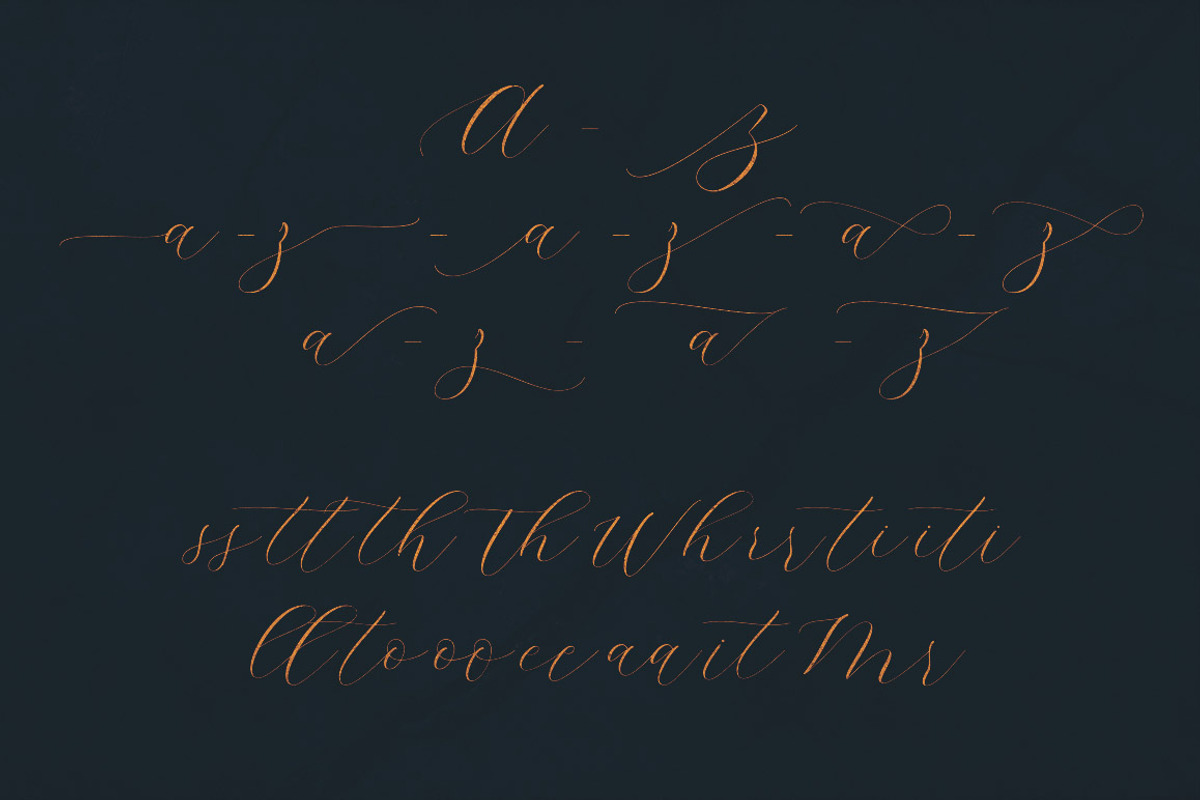 a - z
a - z - a - z - a - z
a - z - a - z
ss tt th Th Wh rr s ti iti
ll to oo cc aa it Mr